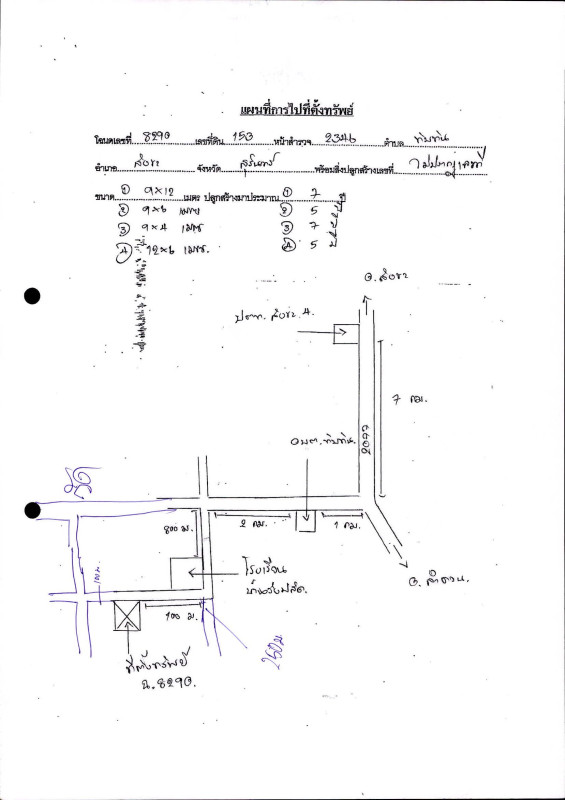 แผนที่การไปที่ตั้งทรัพย์
โฉนดเลขที่ 8290 เลขที่ดิน 153 หน้าสำรวจ 2346 ตำบล ทับทัน
อำเภอ สังขะ จังหวัด สุรินทร์ พร้อมสิ่งปลูกสร้างเลขที่ ไม่ปรากฏเลขที่
ขนาด ① 9×12 เมตร ปลูกสร้างมาประมาณ ① 7 ปี
② 9×6 เมตร ② 5
③ 9×4 เมตร ③ 7
④ 12×6 เมตร. ④ 5
อ.สังขะ
ปตท. สังขะ
7 กม.
2077
อบต.ทับทัน
วัด
800 ม.
2 กม.
1 กม.
โรงเรียน
อ.ลำดวน
100 ม
ที่ตั้งทรัพย์
ฉ.8290
250ม